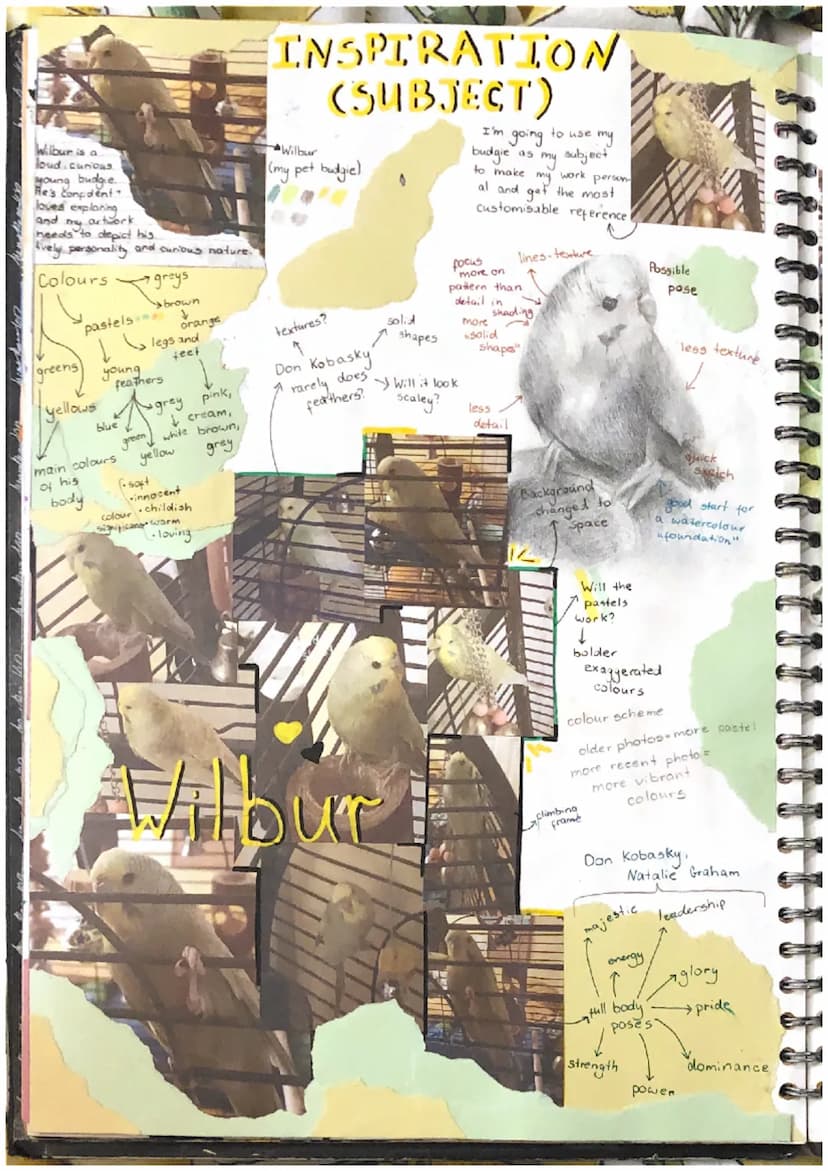 INSPIRATION
(SUBJECT)
Wilbur is a
loud, curious
young budgie.
He's confident +
loves exploring
and my artwork
needs to depict his
lively personality and curious nature.
Wilbur
(my pet budgie)
I'm going to use my
budgie as my subject
to make my work person-
al and get the most
customisable reference
Colours
greys
brown
orange
pastels
legs and
feet
greens
young
feathers
yellows
blue
green
yellow
white
grey
pink,
cream,
brown,
grey
main colours
of his
body
colour
• soft
• innocent
• childish
• warm
• loving
textures?
solid
shapes
Don Kobasky
rarely does
feathers?
Will it look
scaley?
focus
more on
pattern than
detail in
shading
more
"solid
shapes"
lines-texture
Possible
pose
less texture
less
detail
quick
sketch
good start for
a watercolour
"foundation"
Background
changed to
space
Will the
pastels
work?
bolder
exaggerated
colours
colour scheme
older photos=more pastel
more recent photo=
more vibrant
colours
Wilbur
climbing
frame
Don Kobasky,
Natalie Graham
majestic
leadership
energy
glory
full body
poses
pride
strength
dominance
power